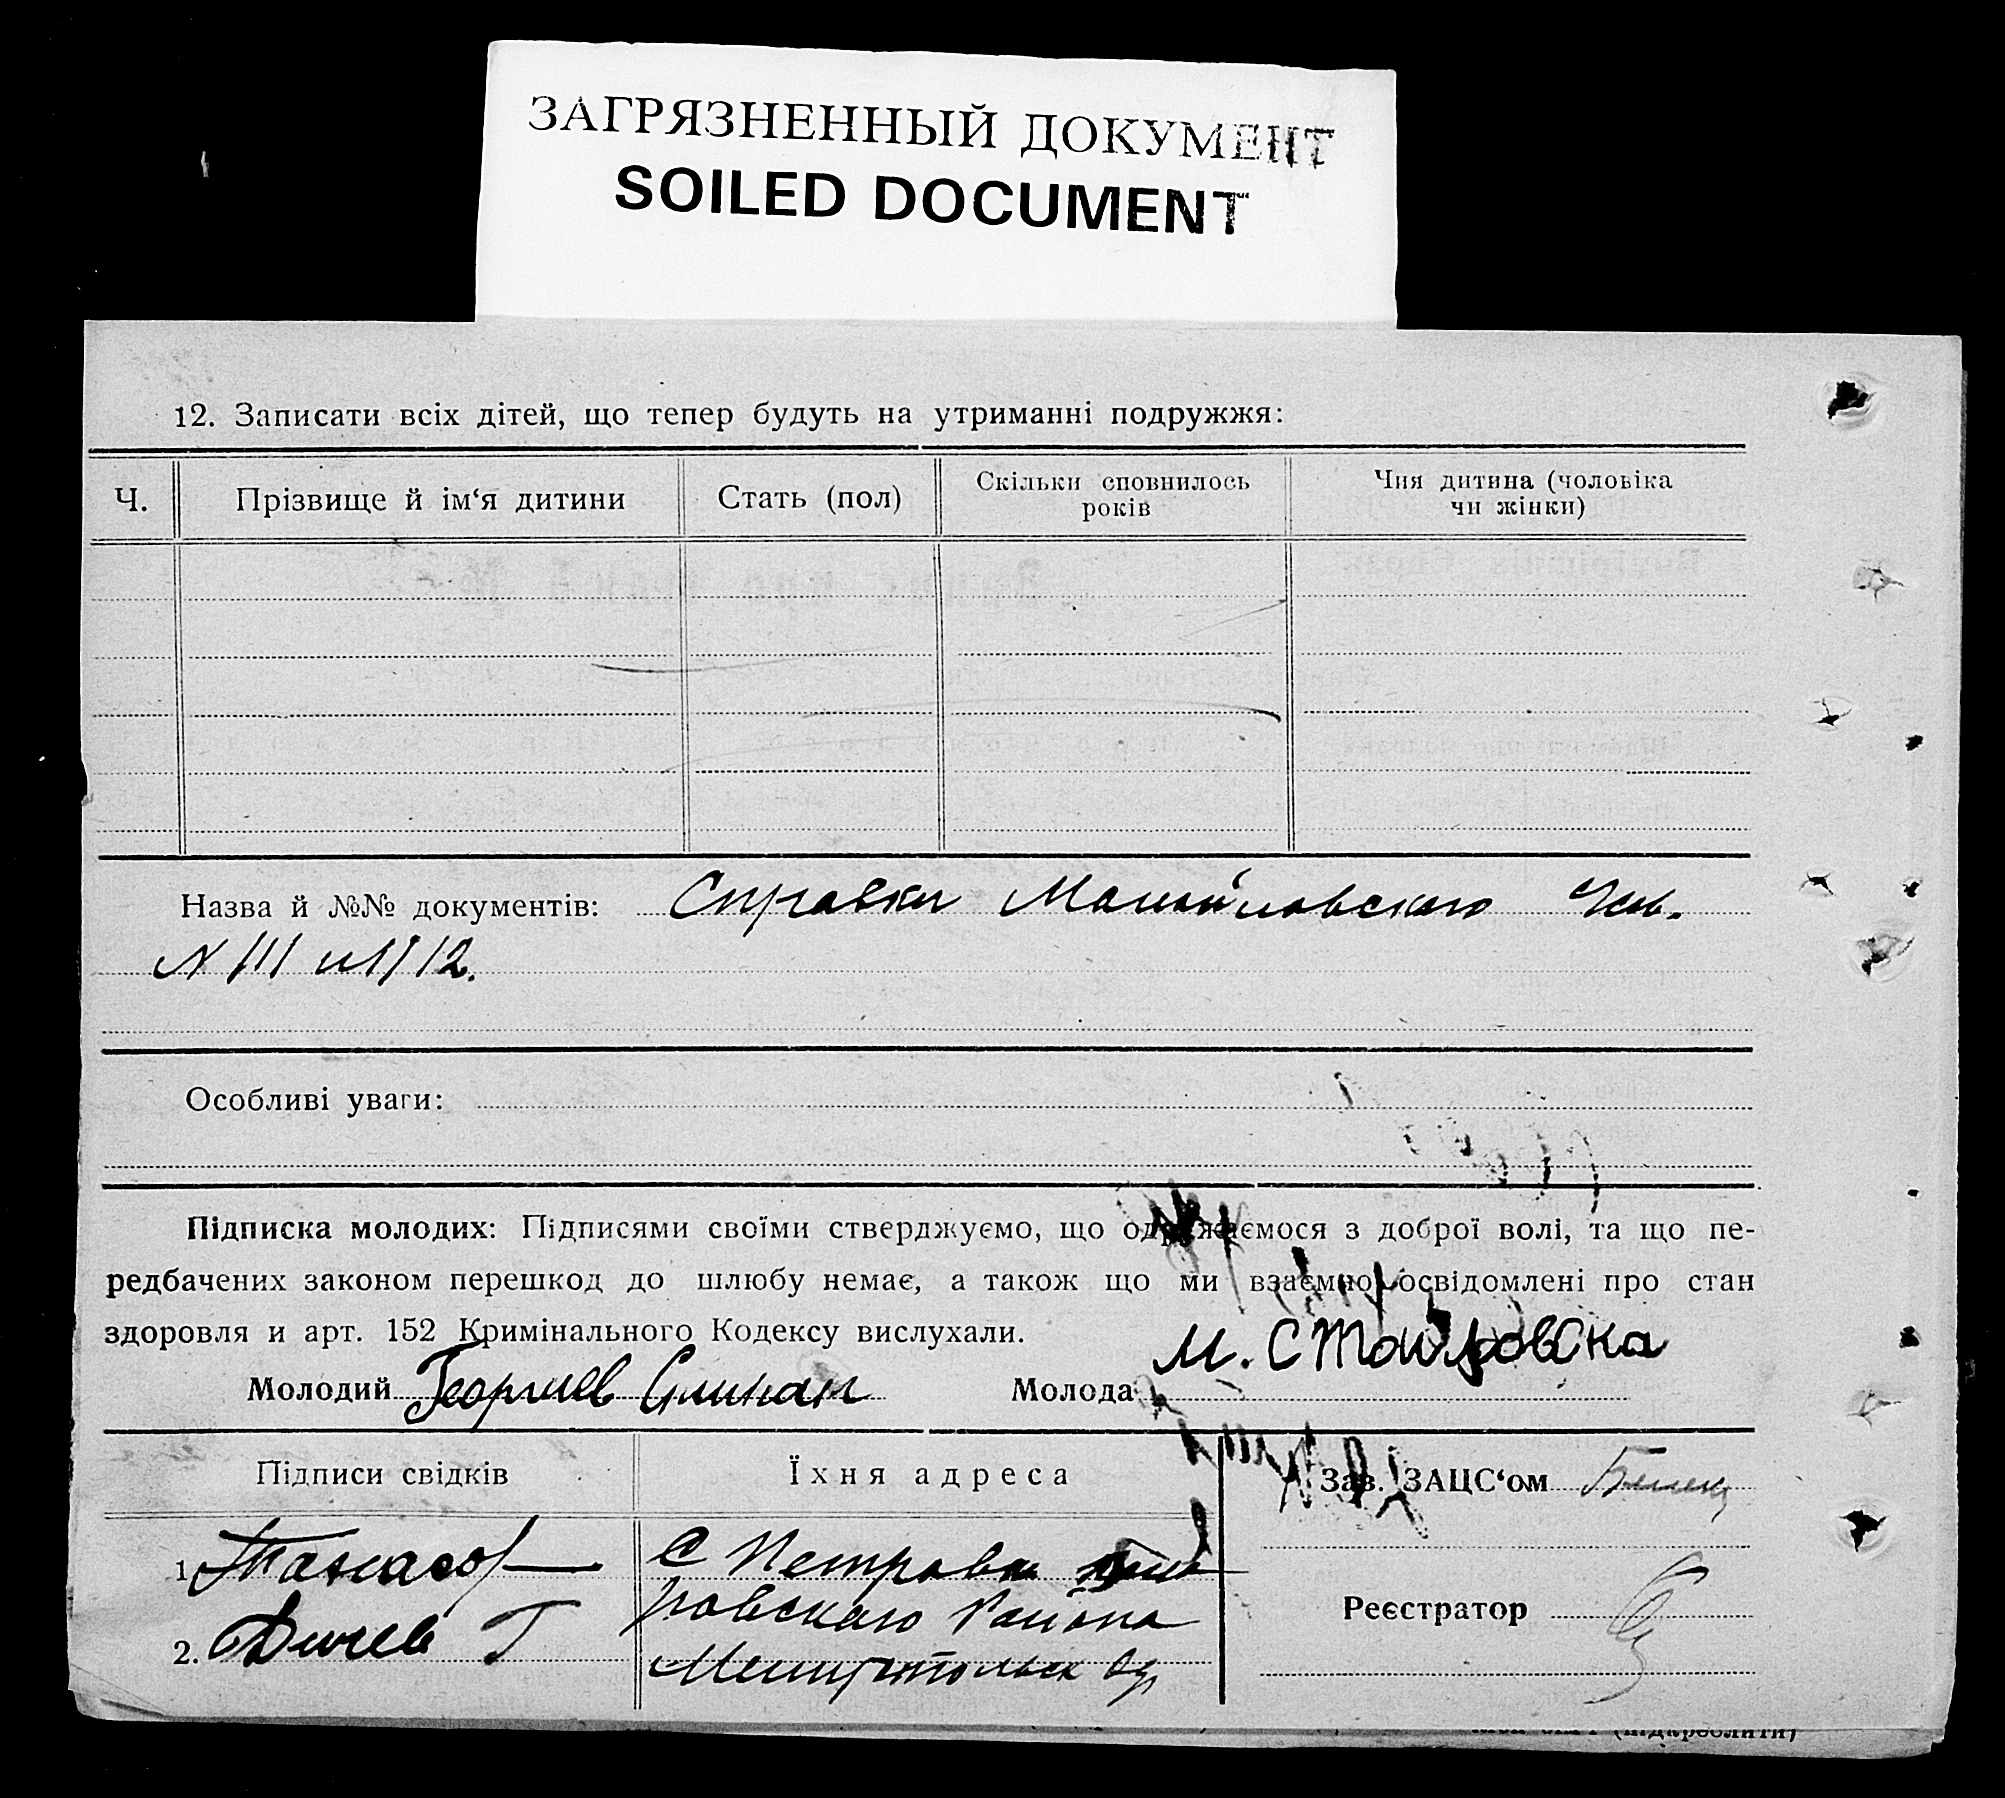 ЗАГРЯЗНЕННЫЙ ДОКУМЕНТ
SOILED DOCUMENT
12. Записати всіх дітей, що тепер будуть на утриманні подружжя:
Ч. Прізвище й ім‘я дитини Стать (пол) Скільки сповнилось років Чия дитина (чоловіка чи жінки)
Назва й №№ документів: Справки
N 111 и 112.
Особливі уваги:
Підписка молодих: Підписями своїми стверджуємо, що одружаємося з доброї волі, та що пе-
редбачених законом перешкод до шлюбу немає, а також що ми взаємно освідомлені про стан
здоровля и арт. 152 Кримінального Кодексу вислухали.
Молодий Георгиев Молода М.
Підписи свідків Їхня адреса Зав. ЗАЦС‘ом
1. С Петровка
2. Дичев Г ровского Района
Реєстратор
Мелитопольск Окр
(підкреслити)